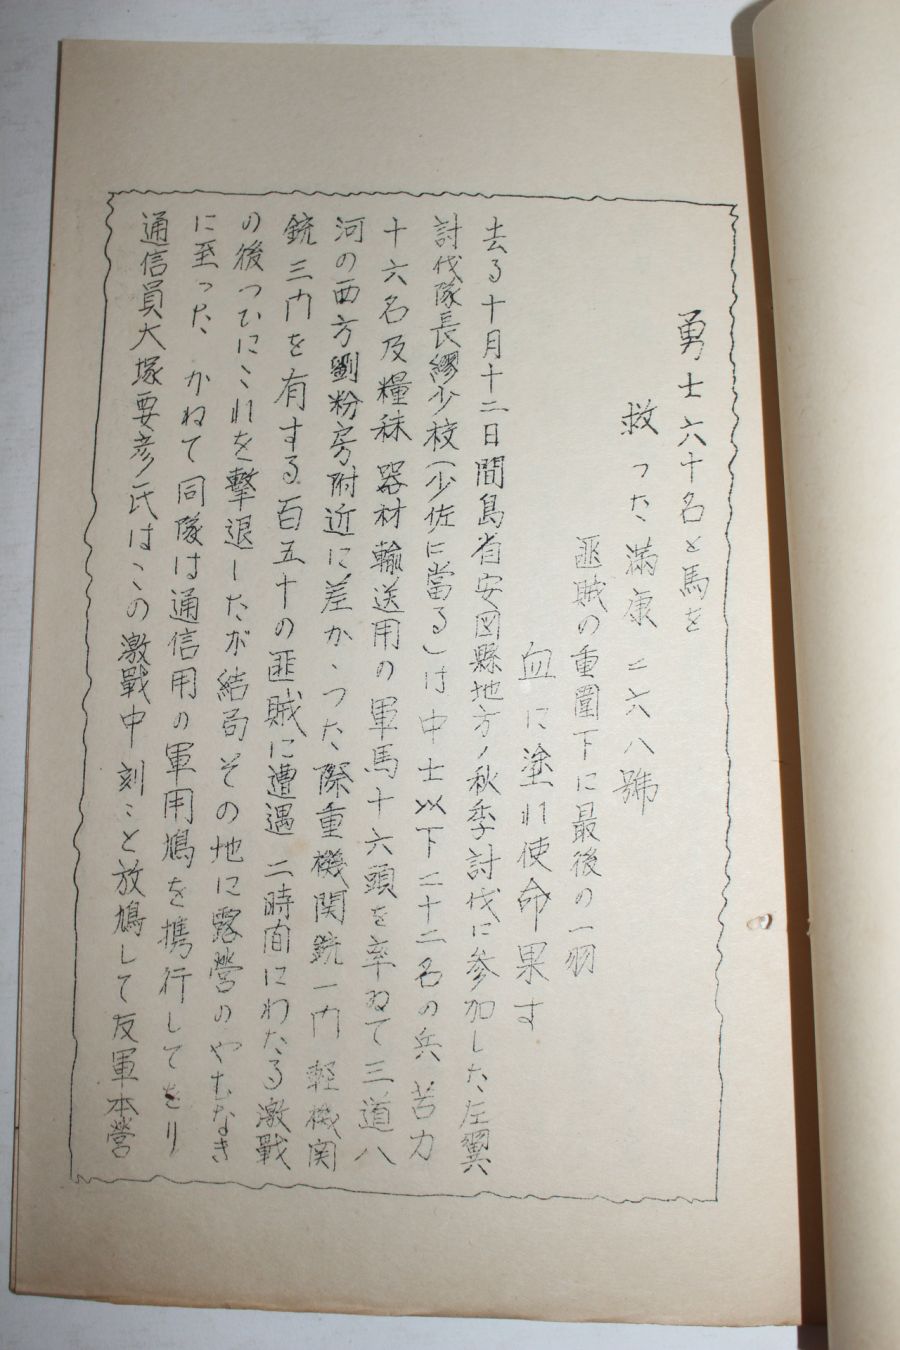 勇士六十名と馬を
救った満康二六八號
匪賊の重圍下に最後の一羽
血に塗れ使命果す
去る十月十二日間島省安図縣地方ノ秋季討伐に参加した左翼
討伐隊長繆少校(少佐に當る)は中士以下二十二名の兵苦力
十六名及糧秣器材輸送用の軍馬十六頭を率ゐて三道八
河の西方劉粉房附近に差かゝった際重機関銃一内軽機関
銃三内を有する百五十の匪賊に遭遇二時間にわたる激戰
の後つひにこれを撃退したが結局その地に露營のやむなき
に至った、かねて同隊は通信用の軍用鳩を携行してをり
通信員大塚要彦氏はこの激戰中刻ミと放鳩して友軍本營